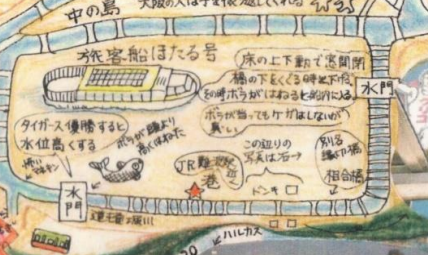 中の島
旅客船ほたる号
床の上下動で窓開閉
橋の下をくぐる時は下げる
その時ボラがはねると船内に入る
ボラが当ってもケガはしないが
臭い
水門
タイガース優勝すると
水位高くする
ボラが膝より
高くはねた
JR難波駅
港
この辺りの
写真は右→
ドンキ
別名
縁切橋
相合橋
水門
道頓堀川
ハルカス